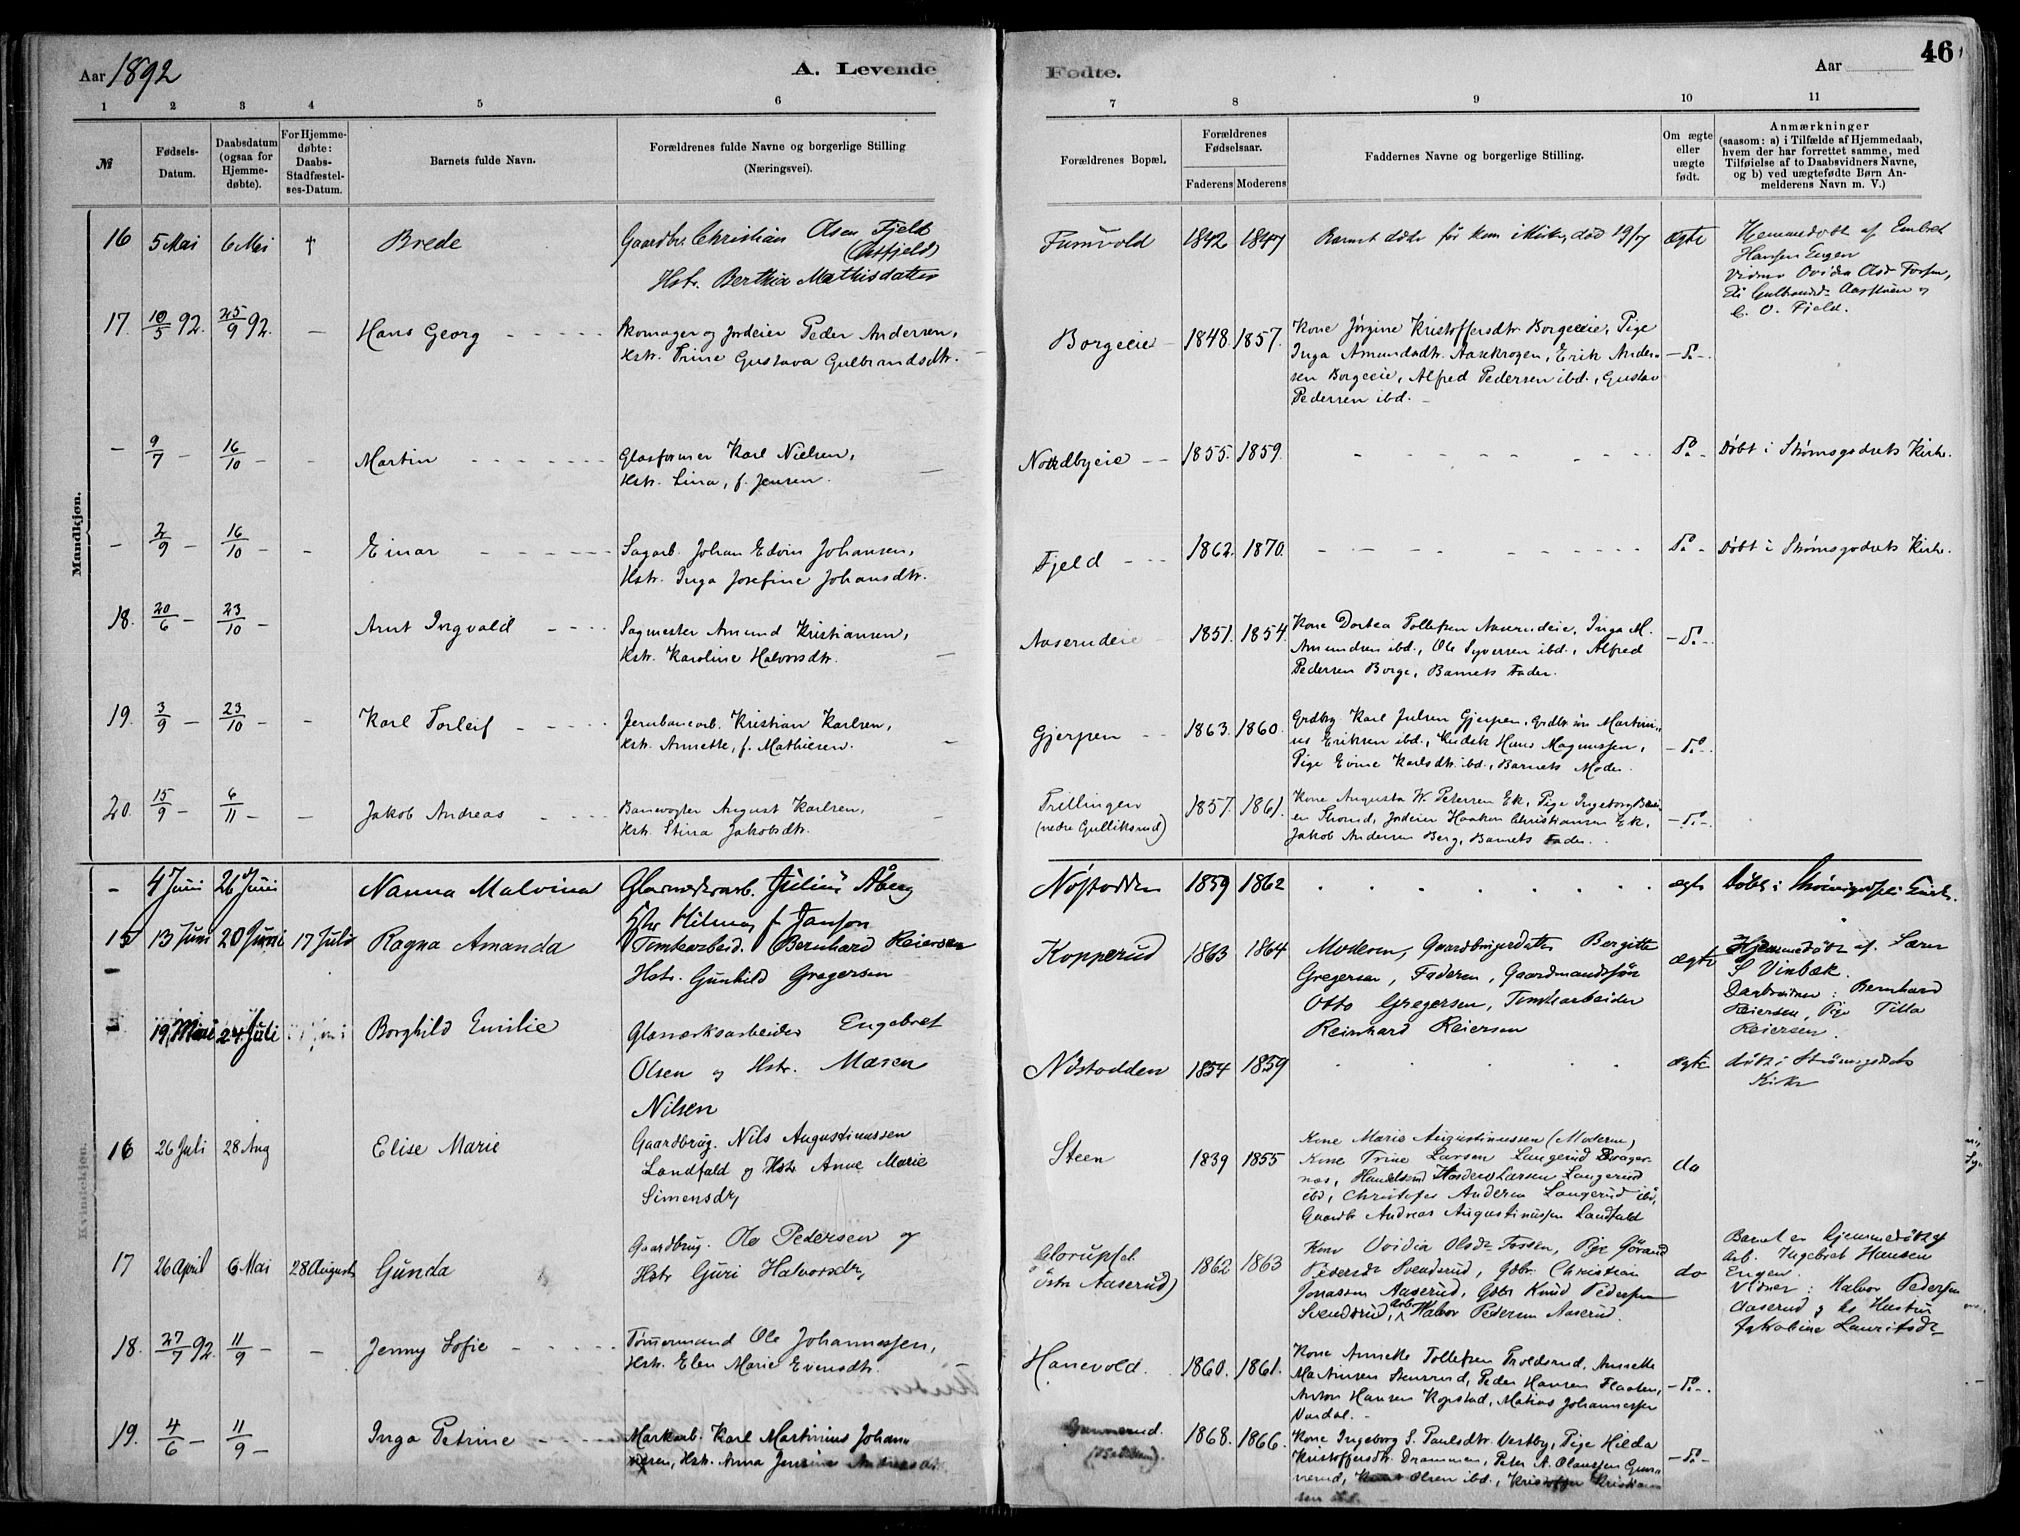 Aar 1892
A. Levende
Fødte.
Aar
46
1 2 3 4 5 6 7 8 9 10 11
№
Fødsels-
Datum.
Daabsdatum
(ogsaa for
Hjemme-
døbte).
For Hjemme-
døbte:
Daabs-
Stadfæstel-
ses-Datum.
Barnets fulde Navn.
Forældrenes fulde Navne og borgerlige Stilling
(Næringsvei).
Forældrenes Bopæl.
Forældrenes
Fødselsaar.
Faderens Moderens
Faddernes Navne og borgerlige Stilling.
Om ægte
eller
uægte
født.
Anmærkninger
(saasom: a) i Tilfælde af Hjemmedaab,
hvem der har forrettet samme, med
Tilføielse af to Daabsvidners Navne,
og b) ved uægtefødte Børn An-
melderens Navn m. V.)
Mandkjøn.
16 5 Mai 6 Mai † Brede
Gaardbr. Christian Olsen Fjeld
Hstr. Berthia Mathisdatter
1842 1847
ægte
Hjemmedøbt af Embret
Hansen Engen
C. O. Fjeld.
17. 10/5 92. 25/9 92. – Hans Georg
Skomager og Jordeier Peder Andersen,
Hstr. Trine Gustava Gulbrandsdtr.
Borgeeie 1848. 1857.
Kone Jørgine Kristoffersdtr. Borgeeie, Pige
Inga Amundsdtr. Aasekrogen, Erik Ander-
sen Borgeeie, Alfred Pedersen ibd., Gustav
Pedersen ibd. –
– Do –
– 9/7 – 16/10 – – Martin
Glasformer Karl Nielsen,
Hstr. Lina, f. Jensen.
Nordbyeie 1855. 1859.
Do – Døbt i Strømsgodsets Kirke.
– 2/9 – 16/10 – – Einar
Sagarb. Johan Edvin Johansen,
Hstr. Inga Josefine Johansdtr.
Fjeld 1862. 1870.
Do – Døbt i Strømsgodsets Kirke.
18. 20/6 – 23/10 – Arnt Ingvald
Sagmester Amund Kristiansen,
Hstr. Karoline Halvorsdtr.
Aaserudeie 1851. 1854.
Kone Dortea Tollefsen Aaserudeie, Inga M.
Amundsen ibd., Ole Syversen ibd., Alfred
Pedersen Borge, Barnets Fader.
– Do –
19. 3/9 – 23/10 – – Karl Torleif
Jernbanearb. Kristian Karlsen,
Hstr. Annette, f. Mathiesen.
Gjerpen 1863. 1860.
Grdbr. Karl Julsen Gjerpen, Martini-
us Eriksen ibd., Hans Magnussen,
Pige Evine Karlsdtr. ibd., Barnets Moder.
– Do –
20. 15/9 – 6/11 – – Jakob Andreas
Banevogter August Karlsen,
Hstr. Stina Jakobsdtr.
Trillingen
(nedre Gulliksrud)
1857. 1861.
Kone Augusta W. Petersen Ek, Pige Ingeborg
Strand, Jordeier Haaken Christiansen Ek,
Jakob Andersen Berg, Barnets Fader.
– Do –
Kvindekjøn.
– 4 Juni 26 Juni Nanna Malvina
Glasværksarb. Julius Åberg
Hstr Hilma f. Janson
Nøstodden 1859 1862
ægte
15 13 Juni 20 Juni 17 Juli Ragna Amanda
Tomtearbeid. Bernhard Reiersen
Hstr. Gunhild Gregersen
Kopperud 1863 1864
Moderen, Gaardbrugerdatter Borgitte
Gregersen, Faderen, Gaardmandssøn
Otto Gregersen, Tomtearbeider
Reinhard Reiersen
ægte
Hjemmedøbt af Lærer
S Vinbæk.
Daabsvidner: Bernhard
Reiersen, Pige Tilla
Reiersen.
– 19 Mai 24 Juli Borghild Emilie
Glasværksarbeider Engebret
Olsen og Hstr. Maren
Nilsen
Nøstodden 1854 1859
ægte
døbt i Strømsgodsets
Kirke
16 26 Juli 28 Aug Elise Marie
Gaardbrug. Nils Augustinussen
Landfald og Hstr Anne Marie
Simensdtr
Steen 1839 1855
Kone Marie Augustinussen (Moderen)
Kone Trine Larsen Langerud Drager-
nas, Larsen Langerud
ibd, Christofer Andersen Langerud ibd,
Gaardbr Andreas Augustinussen Landfald
do
17 26 April 6 Mai 28 August Gunda
Gaardbrug. Ole Pedersen og
Hstr Guri Halvorsdtr
Østre Aaserud)
1862 1863
Kone Ovidia Olsdr Fossen, Pige Gørand
Pedersdr Svendsrud, Gbr. Christian
Jonassen Aaserud, Gbr Knud Pedersen
Svendsrud, Arb. Halvor Pedersen Aaserud.
do
Barnet er hjemmedøbt af
Arb. Ingebret Hansen
Engen.
Vidner: Halvor Pedersen
Aaserud og hs Hustru
Jakobine Lauritsdr
18. 27/7 92. 11/9 – – Jenny Sofie
Tømmermand Ole Johannessen,
Hstr. Elen Marie Evensdtr.
Hanevold. 1860. 1861.
Kone Annette Tollefsen Troldsrud, Annette
Martinsen Stensrud, Peder Hansen Flaaten,
Anton Hansen Kopstad, Matias Johannessen
Vardal. –
– Do –
19. 4/6 – 11/9 – Inga Petrine
Markarb. Karl Martinius Johan-
nesen, Hstr. Anna
Gunnerud.
1868. 1866.
Kone Ingeborg S. Paulsdtr. Vestby, Pige Hilda
Kristoffersdtr. Drammen, Peter A. Olaussen Gun-
nerud, Olsen ibd., Kristoffer Kristian-
sen ibd. –
– Do –